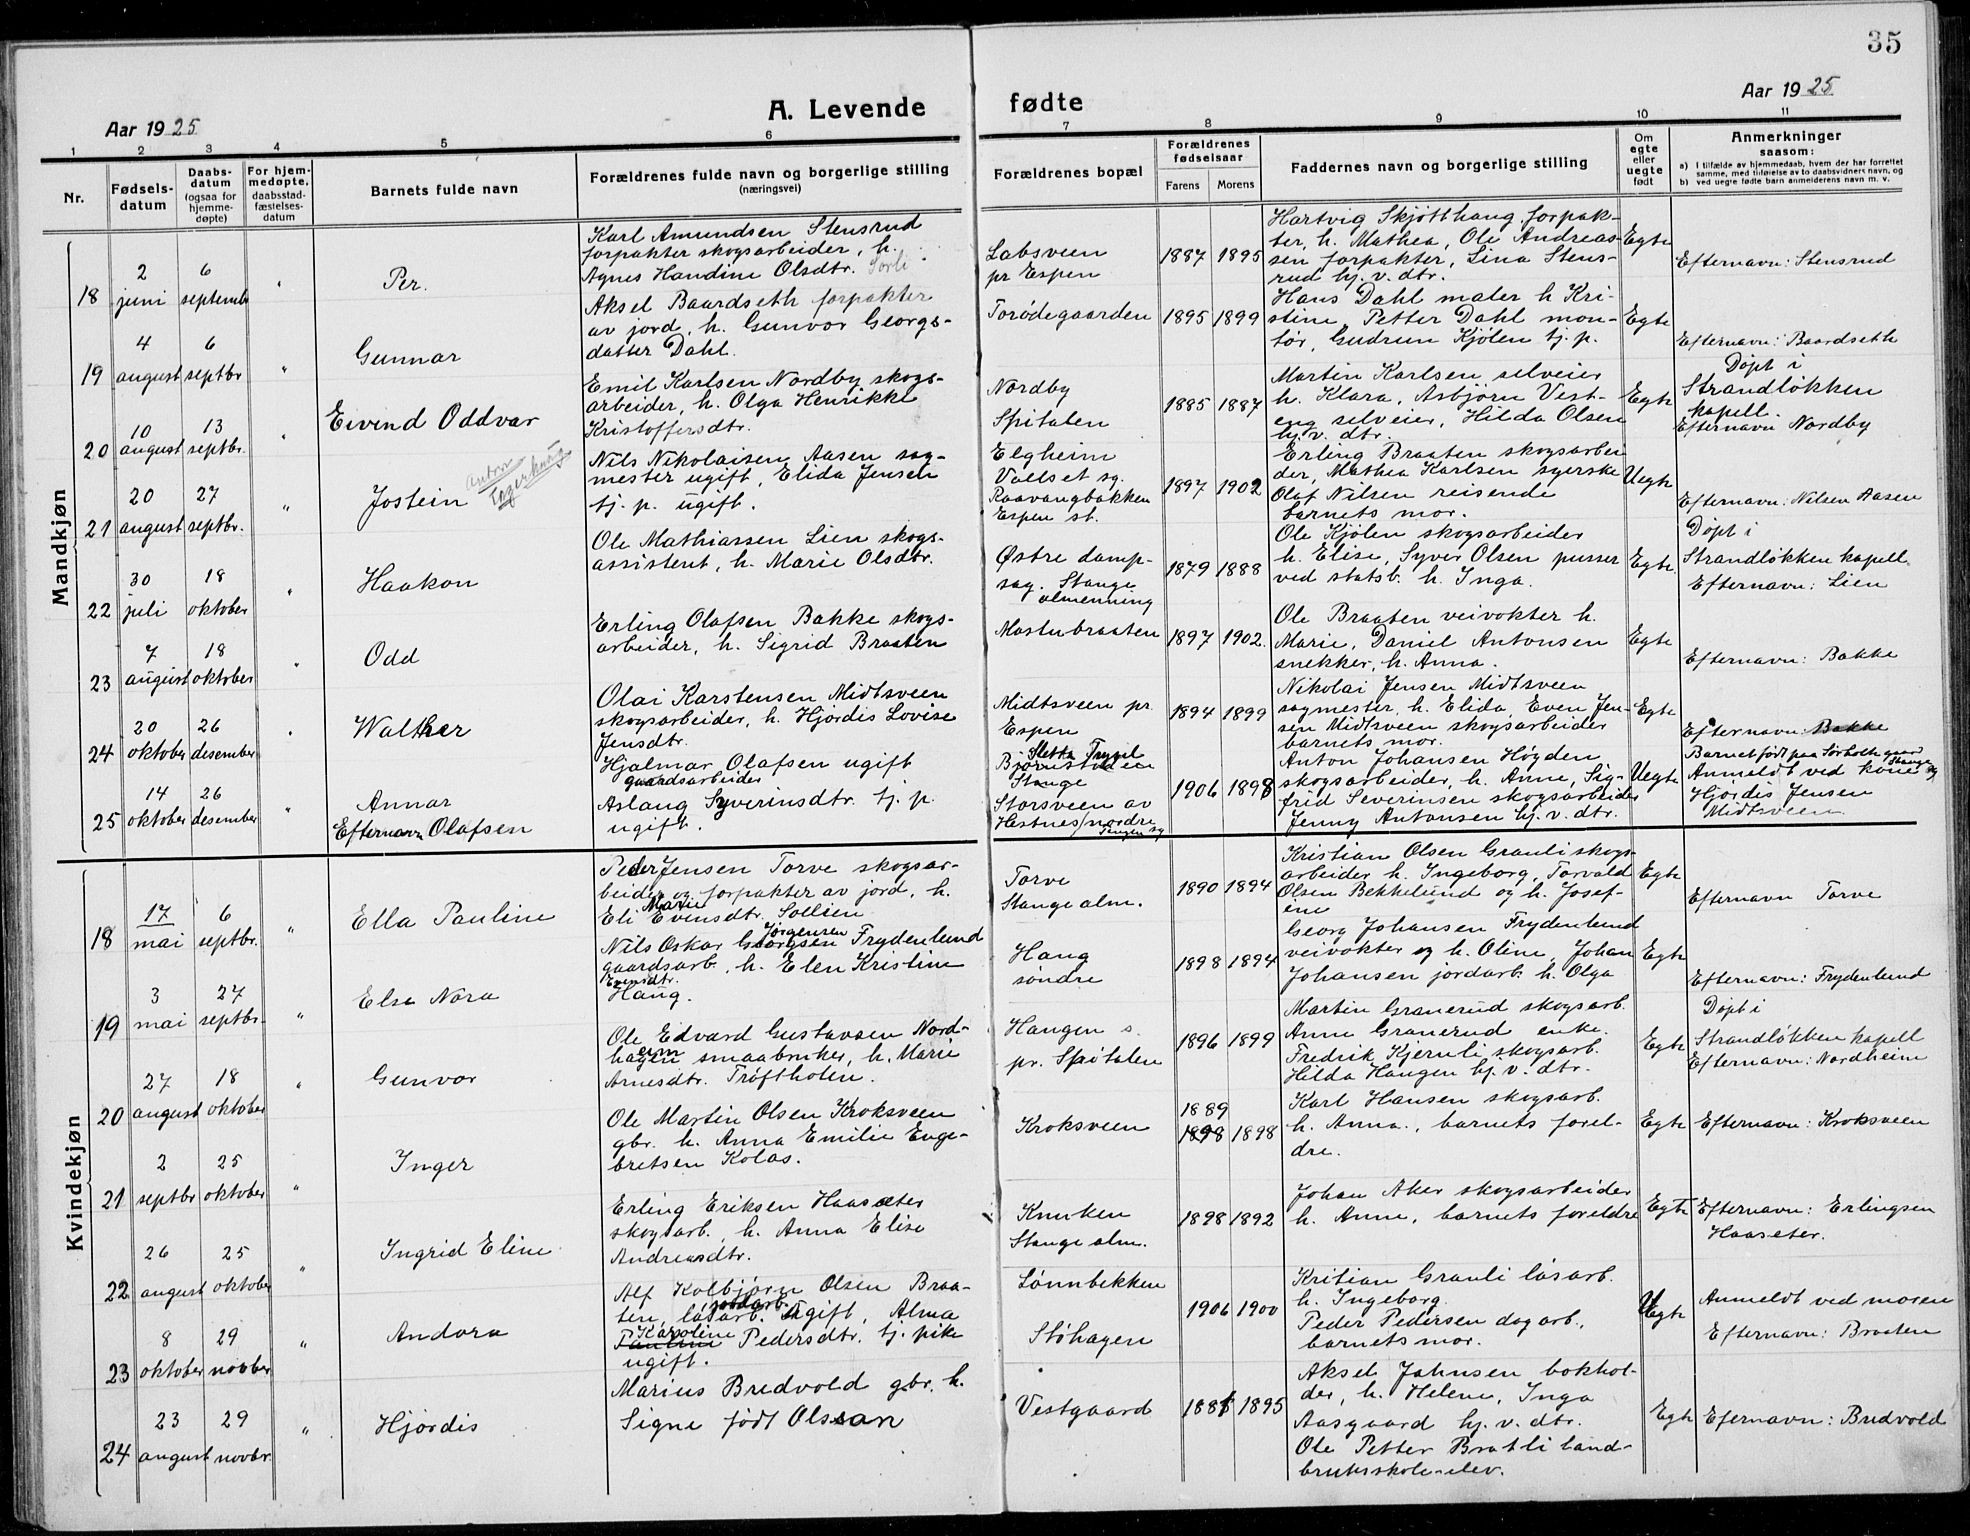 35
A. Levende fødte
Aar 1925
Aar 1925
1 2 3 4 5 6 7 8 9 10 11
Nr.
Fødsels-
datum
Daabs-
datum
(ogsaa for
hjemme-
døpte)
For hjem-
medøpte,
daabsstad-
fæstelses-
datum
Barnets fulde navn
Forældrenes fulde navn og borgerlige stilling
(næringsvei)
Forældrenes bopæl
Forældrenes
fødselsaar
Farens Morens
Faddernes navn og borgerlige stilling
Om
egte
eller
uegte
født
Anmerkninger
saasom:
a) I tilfælde av hjemmedaab, hvem der har forrettet
samme, med tilføielse av to daabsvidners navn, og
b) ved uegte fødte barn anmelderens navn m. v.
Mandkjøn
18
2
juni
6
septembr
"
Per.
Karl Amundsen Stensrud
forpakter skogsarbeider, h.
Agnes Handine Olsdtr. Sorli
Labsveen
pr Espen
1887 1895
Hartvig Skjøtthaug forpak-
ter, h. Mathea, Ole Andreas-
sen forpakter, Lina Stens-
rud hj. v. dtr.
Egte
Efternavn: Stensrud
19
4
august
6
septbr
"
Gunnar
Aksel Baardseth forpakter
av jord, h. Gunvor Georgs-
datter Dahl.
Torødegaarden
1895 1899
Hans Dahl maler h Kri-
stine, Petter Dahl mon-
tør, Gudrun Kjølen tj. p.
Egte
Efternavn: Baardseth
20
10
august
13
septbr.
"
Eivind Oddvar
Emil Karlsen Nordby skogs-
arbeider, h. Olga Henrikke
Kristoffersdtr.
Nordby
Spitalen
1885 1887
Martin Karlsen selveier
h. Klara, Asbjørn Vest-
eng selveier, Hilda Olsen
hj. v. dtr.
Egte
Døpt i
Strandløkken
kapell.
Efternavn Nordby
21
20
august
27
septbr.
"
Jostein
Nils Nikolaisen Aasen sag-
mester ugift, Elida Jensen
tj. p. ugift.
Elgheim
Vallset sg.
Raavangbakken
Espen st.
1897 1902
Erling Braaten skogsarbei
der, Mathea Karlsen syerske
Olaf Nilsen reisende
barnets mor.
Uegte
Efternavn: Nilsen Aasen
22
30
juli
18
oktober
"
Haakon
Ole Mathiassen Lien skogs-
assistent, h. Marie Olsdtr.
Østre damp-
sag. Stange
almenning
1879 1888
Ole Kjølen skogsarbeider
h. Elise, Syver Olsen pusser
ved statsb. h. Inga.
Egte.
Døpt i
Strandløkken kapell.
Efternavn: Lien
23
7
august
18
oktober
"
Odd
Erling Olafsen Bakke skogs-
arbeider, h. Sigrid Braaten
Mastubraaten
1897 1902.
Ole Braaten veivokter h.
Marie, Daniel Antonsen
snekker, h. Anna.
Egte
Efternavn: Bakke
24
20
oktober
26
desember
"
Walther
Olai Karstensen Midtsveen
skogsarbeider, h. Hjördis Lovise
Jensdtr.
Midtsveen pr
Espen
1894 1899
Nikolai Jensen Midtsveen
sagmester, h. Elida, Even Jen-
sen Midtsveen skogsarbeider
barnets mor.
Egte
Efternavn: Bakke
25
14
oktober
26
desember
"
Annar
Efternavn Olafsen
Hjalmar Olafsen ugift
gaardsarbeider
Aslaug Syverinsdtr. tj. p.
ugift.
Stange
Storsveen av
Hestnes/nordre
Tangen sg
1906 1898
Anton Johansen Høgden
skogsarbeider, h. Anne, Sig-
frid Severinsen skogsarbeider
Jenny Antonsen hj. v. dtr.
Uegte
Anmeldt ved kone
Hjördis Jensen
Midtsveen
Kvindekjøn
18
17
mai
6
septbr.
"
Ella Pauline
Peder Jensen Torve skogsar-
beider og forpakter av jord, h.
Marie
Eli Evensdtr. Sollien
Torve
Stange alm.
1890 1894
Kristian Olsen Grauli skogs-
arbeider h. Ingeborg, Torvald
Olsen Bekkelund og h. Josef-
ine
Egte
Efternavn Torve
19
3
mai
27
septbr.
"
Elsa Nora
Jørgensen
Nils Oskar Georgsen Frydenlund
gaardsarb, h. Elen Kristine
Evensdtr.
Haug.
Haug
søndre
1898 1894
Georg Johansen Frydenlund
veivokter og h. Oline, Johan
Johansen jordarb. h. Olga
Egte
Efternavn: Frydenlund
20
27
august
18
oktober
"
Gunvor
Ole Edvard Gustavsen Nord-
hagen smaabruker, h. Marie
Arnesdtr. Trøftholen.
Haugen s.
pr. Spitalen
1896 1899
Martin Granerud skogsarb.
Anne Granerud enke.
Fredrik Kjernli skogsarb.
Hilda Haugen hj. v. dtr.
Egte
Døpt i
Strandløkken kapell
Efternavn: Nordheim
21
2
septbr
25
oktober
"
Inger
Ole Martin Olsen Kroksveen
gbr. h. Anna Emilie Enge-
bretsen Kolas.
Kroksveen
1889
1898 1898
Karl Hansen skogsarb.
h. Anna., barnets forel-
dre.
Egte
Efternavn: Kroksveen
22
26
august
25
oktober
"
Ingrid Eline
Erling Eriksen Haasæter
skogsarb. h. Anna Elise
Andreasdtr.
Knuken
Stange alm.
1898 1892
Johan Aker skogsarbeider
h. Anne, barnets foreldre
Egte
Efternavn: Erlingsen
Haaseter.
23
8
oktober
29
novber
"
Andora
Alf Kolbjørn Olsen Braa-
ten, løsarb. ugift, Alma
Karoline
Pauline Pedersdtr. tj. pike
ugift.
Lønnbekken
Støhagen
1906 1900
Kritian Grauli løsarb.
h. Ingeborg.
Peder Pedersen dagarb.,
barnets mor.
Uegte
Anmeldt ved moren
Efternavn: Braaten
24
23
august
29
novbr.
"
Hjördis
Marius Bredvold gbr. h.
Signe født Olssan
Vestgaard
1895
Aksel Jahnsen bokhol-
der, h. Helene, Inga
Aasgaard hj. v. dtr.
Ole Petter Bratli land-
bruksskole-elev.
Egte
Efernavn: Bredvold